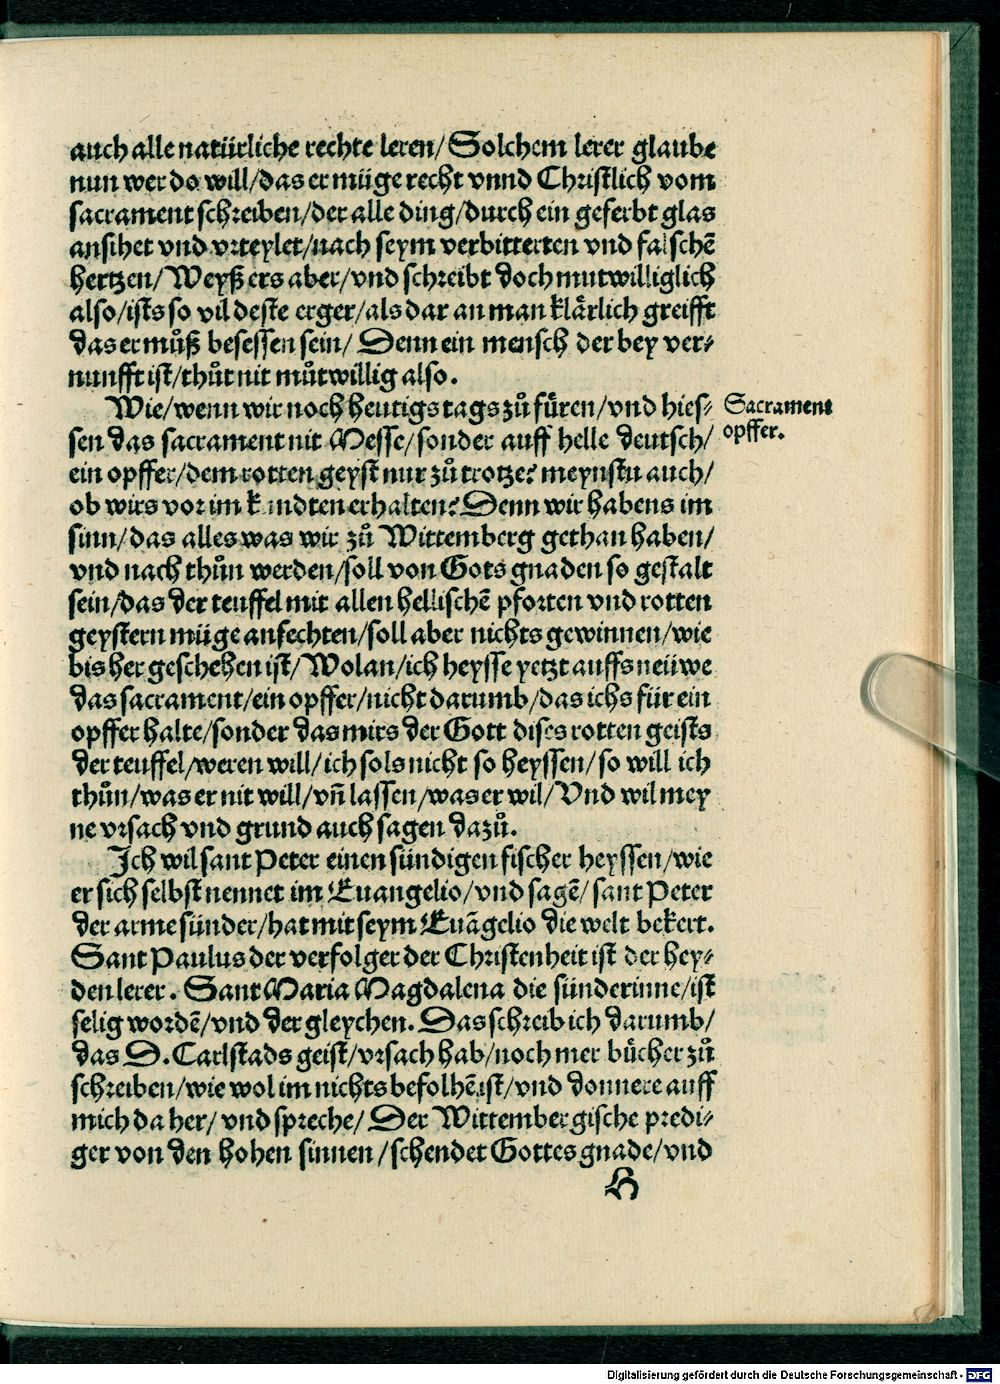 auch alle natürliche rechte leren/ Solchem lerer glaube
nun wer do will/ das er müge recht vnnd Christlich vom
sacrament schreiben/ der alle ding/ durch ein geferbt glas
ansihet vnd vrteylet/ nach seym verbitterten vnd falschē
hertzen/ Weyß ers aber/ vnd schreibt doch mutwilliglich
also/ ists so vil deste erger/ als dar an man klärlich greifft
das er můß besessen sein/ Denn ein mensch der bey ver⸗
nunfft ist/ thůt nit můtwillig also.
Wie/ wenn wir noch heutigs tags zů fůren/ vnd hies⸗
Sacrament
opffer.
sen das sacrament nit Messe/ sonder auff helle deutsch/
ein opffer/ dem rotten geyst nur zů trotze? meynstu auch/
ob wirs vor im kundten erhalten? Denn wir habens im
sinn/ das alles was wir zů Wittemberg gethan haben/
vnd nach thůn werden/ soll von Gots gnaden so gestalt
sein/ das der teuffel mit allen hellischē pforten vnd rotten
geystern müge anfechten/ soll aber nichts gewinnen/ wie
bis her geschehen ist/ Wolan/ ich heysse yetzt auffs neüwe
das sacrament/ ein opffer/ nicht darumb/ das ichs für ein
opffer halte/ sonder das mirs der Gott dises rotten geists
der teuffel/ weren will/ ich sols nicht so heyssen/ so will ich
thůn/ was er nit will/ vñ lassen/ was er wil/ Vnd wil mey
ne vrsach vnd grund auch sagen dazů.
Ich wil sant Peter einen sündigen fischer heyssen/ wie
er sich selbst nennet im Euangelio/ vnd sagē/ sant Peter
der arme sünder/ hat mit seym Euāgelio die welt bekert.
Sant Paulus der verfolger der Christenheit ist der hey⸗
den lerer. Sant Maria Magdalena die sünderinne/ ist
selig wordē/ vnd der gleychen. Das schreib ich darumb/
das D. Carlstads geist/ vrsach hab/ noch mer bücher zů
schreiben/ wie wol im nichts befolhē ist/ vnd donnere auff
mich da her/ vnd spreche/ Der Wittembergische predi⸗
ger von den hohen sinnen/ schendet Gottes gnade/ vnd
H
Digitalisierung gefördert durch die Deutsche Forschungsgemeinschaft - DFG